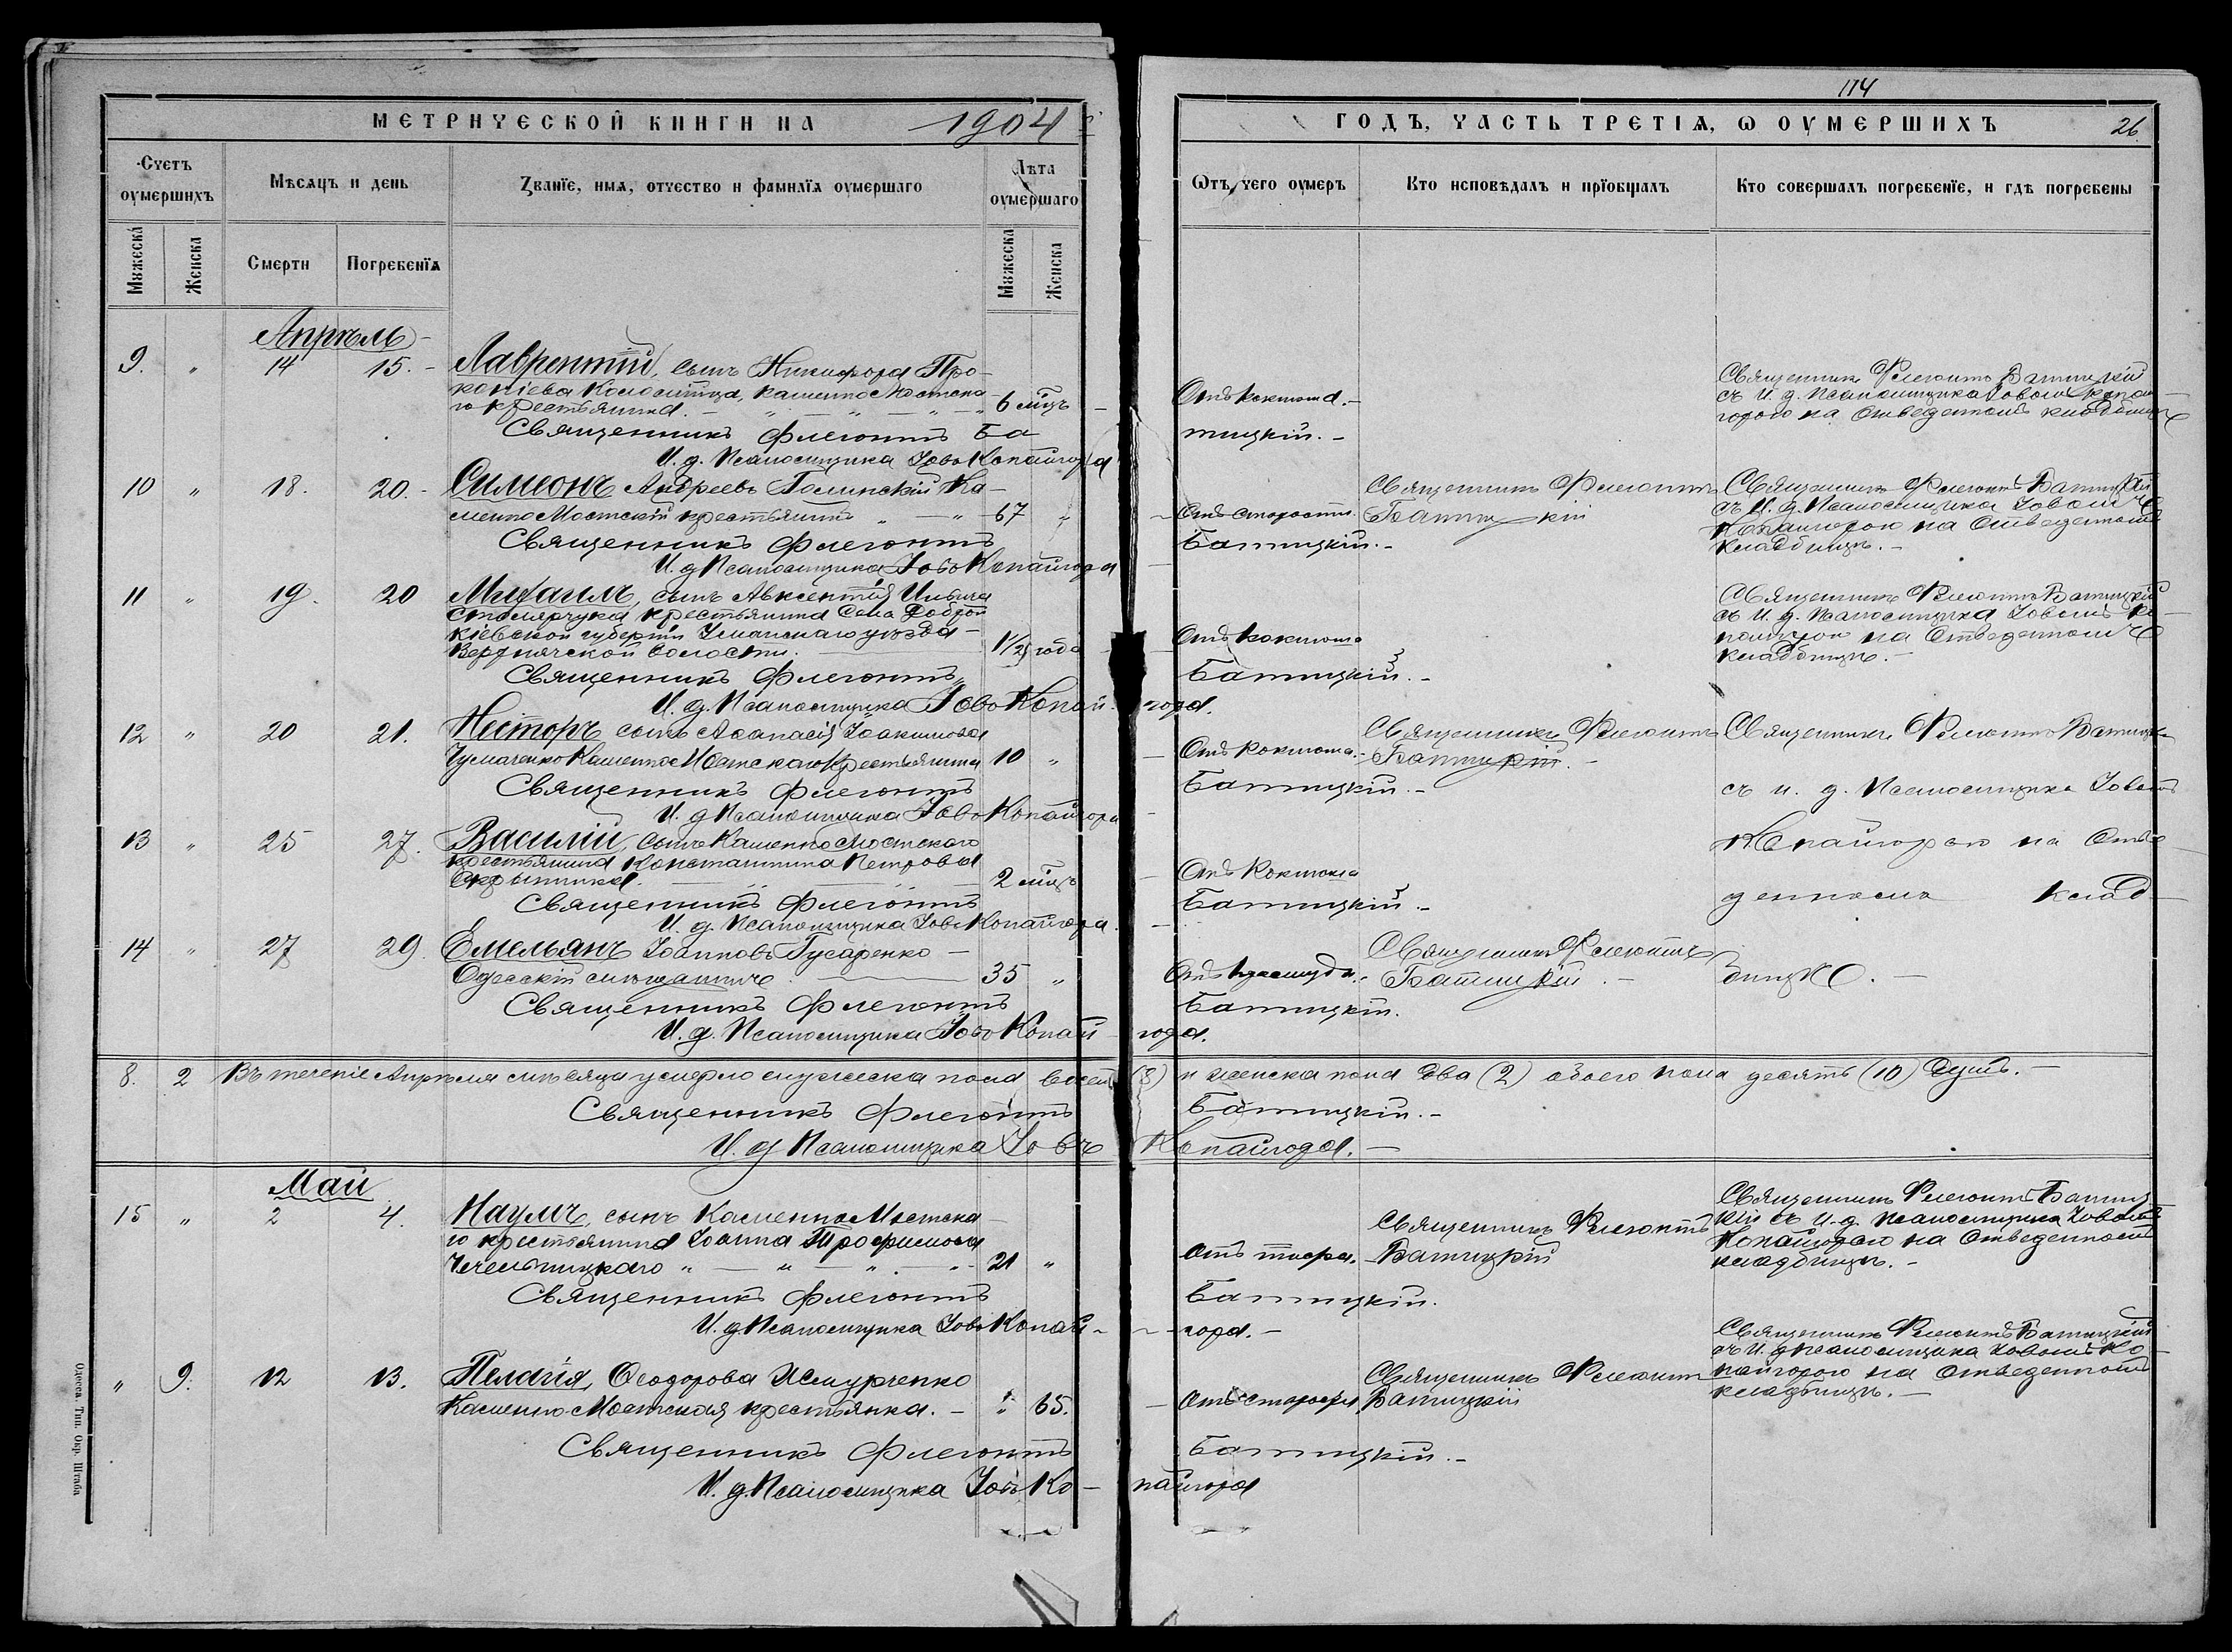 114
МЕТРИЧЕСКОЙ КНИГИ НА 1904
ГОДЪ, ЧАСТЬ ТРЕТІѦ, Ѡ ОУМЕРШИХЪ 26.
Счетъ оумершихъ
Мѣсѧцъ и день
Званїе, имѧ, отчество и фамилїѧ оумершаго
Лѣта оумершаго
Ѿтъ чего оумеръ
Кто исповѣдалъ и прїобщалъ
Кто совершалъ погребенїе, и гдѣ погребены
Мꙋжеска
Женска
Смерти
Погребенїѧ
Мꙋжеска
Женска
Апрѣль
9. " 14 15. - Лаврентій, сынъ Никифора Про-
копіева Коломійца, КаменноМостска-
го крестьянина. 6 мѣц. Отъ коклюша.-
Священникъ Флегонтъ Батицкій
съ И. д. Псаломщика Іовомъ Копай-
городо на отведенномъ кладбищѣ
Священникъ Флегонтъ Батицкій.-
И. д. Псаломщика Іовъ Копайгора
10 " 18. 20.- Симеонъ Андреевъ Голинскій Ка-
менноМостскій крестьянинъ " - " 67 " Отъ старости.
Священникъ Флегонтъ
Батицкій
Священникъ Флегонтъ Батицкій
съ И. д. Псаломщика Іовомъ
Копайгорою на отведенномъ
кладбищѣ.-
Священникъ Флегонтъ Батицкій.-
И. д. Псаломщика Іовъ Копайгора
11 " 19. 20 Михаилъ, сынъ Авксентія Ильича
Столярчука крестьянина села Доброй
Кіевской губерніи Уманскаго уѣзда-
Верхнячской волости. 1 1/2 года Отъ коклюша
Священникъ Флегонтъ Батицкій
съ И. д. Псаломщика Іовомъ Ко-
пайгорою на отведенномъ
кладбищѣ.-
Священникъ Флегонтъ Батицкій.-
И. д. Псаломщика Іовъ Копайгора.
12 " 20 21. Несторъ сынъ Аѳанасія Іоакимова
Чумаченко КаменноМостскаго крестьянина 10 " Отъ коклюша.-
Священникъ Флегонтъ
Батицкій.-
Священникъ Флегонтъ Батицкій
съ и. д. Псаломщика Іовомъ
Копайгорою на отве-
денномъ клад-
бищѣ.-
Священникъ Флегонтъ Батицкій.-
И. д. Псаломщика Іовъ Копайгора
13 " 25 27. Василій, сынъ КаменноМостскаго
крестьянина Константина Петрова
2 мѣц. Отъ коклюша
Священникъ Флегонтъ Батицкій.-
И. д. Псаломщика Іовъ Копайгора.
14 " 27 29. Емельянъ Іоанновъ Гусаренко -
Одесскій мѣщанинъ 35 "
Священникъ Флегонтъ
Батицкій.-
Священникъ Флегонтъ Батицкій.
И. д. Псаломщика Іовъ Копайгора.
8. 2 Въ теченіе Апрѣля мѣсяца умерло мужеска пола восемь (8) и женска пола два (2) обоего пола десять (10) душъ.-
Священникъ Флегонтъ Батицкій.-
И. д. Псаломщика Іовъ Копайгора.-
Май
15 " 2 4. Наумъ, сынъ КаменноМостска-
го крестьянина Іоанна Трофимова
Чечельницкаго " - " - " - 21 " Отъ тифа.
Священникъ Флегонтъ
Батицкій
Священникъ Флегонтъ Батиц-
кій съ и. д. Псаломщика Іовомъ
Копайгорою на отведенномъ
кладбищѣ.-
Священникъ Флегонтъ Батицкій.
И. д. Псаломщика Іовъ Копай-гора.-
" 9. 12 13. Пелагія, Ѳеодорова
КаменноМостская крестьянка.- " 65. Отъ старости.
Священникъ Флегонтъ
Батицкій
Священникъ Флегонтъ Батицкій
съ И. д. Псаломщика Іовомъ Ко-
пайгорою на отведенномъ
кладбищѣ.-
Священникъ Флегонтъ Батицкій.-
И. д. Псаломщика Іовъ Ко-пайгора
Одесса Тип. Окр. Штаба